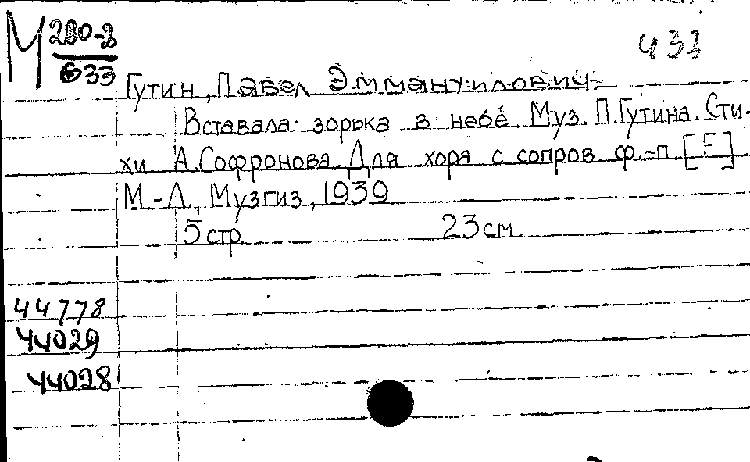 М 280-3
633
433
Гутин, Павел Эммануилович.
Вставала зорька в небе. Муз. П.Гутина. Сти-
хи А.Софронова. Для хора с сопров. ф.-п. [F]
М.-Л., Музгиз, 1939
5 стр. 23 см.
44778
44029
44028